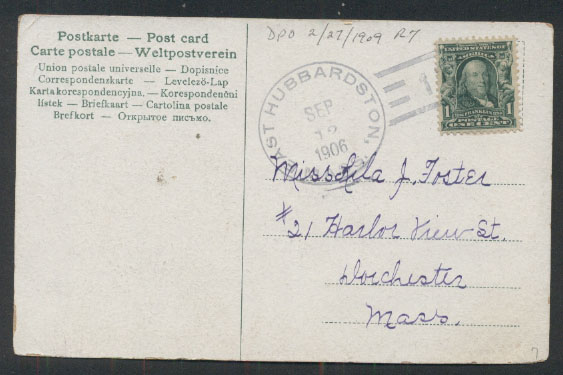 Postkarte — Post card
Carte postale — Weltpostverein
Union postale universelle — Dopisnice
Correspondenzkarte — Levelező-Lap
Karta korespondencyjna. — Korespondenční
lístek — Briefkaart — Cartolina postale
Brefkort — Открытое письмо.
DPO 2/27/1909 R7
EAST HUBBARDSTON,
SEP
12
1906
UNITED STATES OF
AMERICA
1
1
POSTAGE
ONE CENT
Miss Lila J. Foster
#21 Harbor View St.
Dorchester
Mass.
7